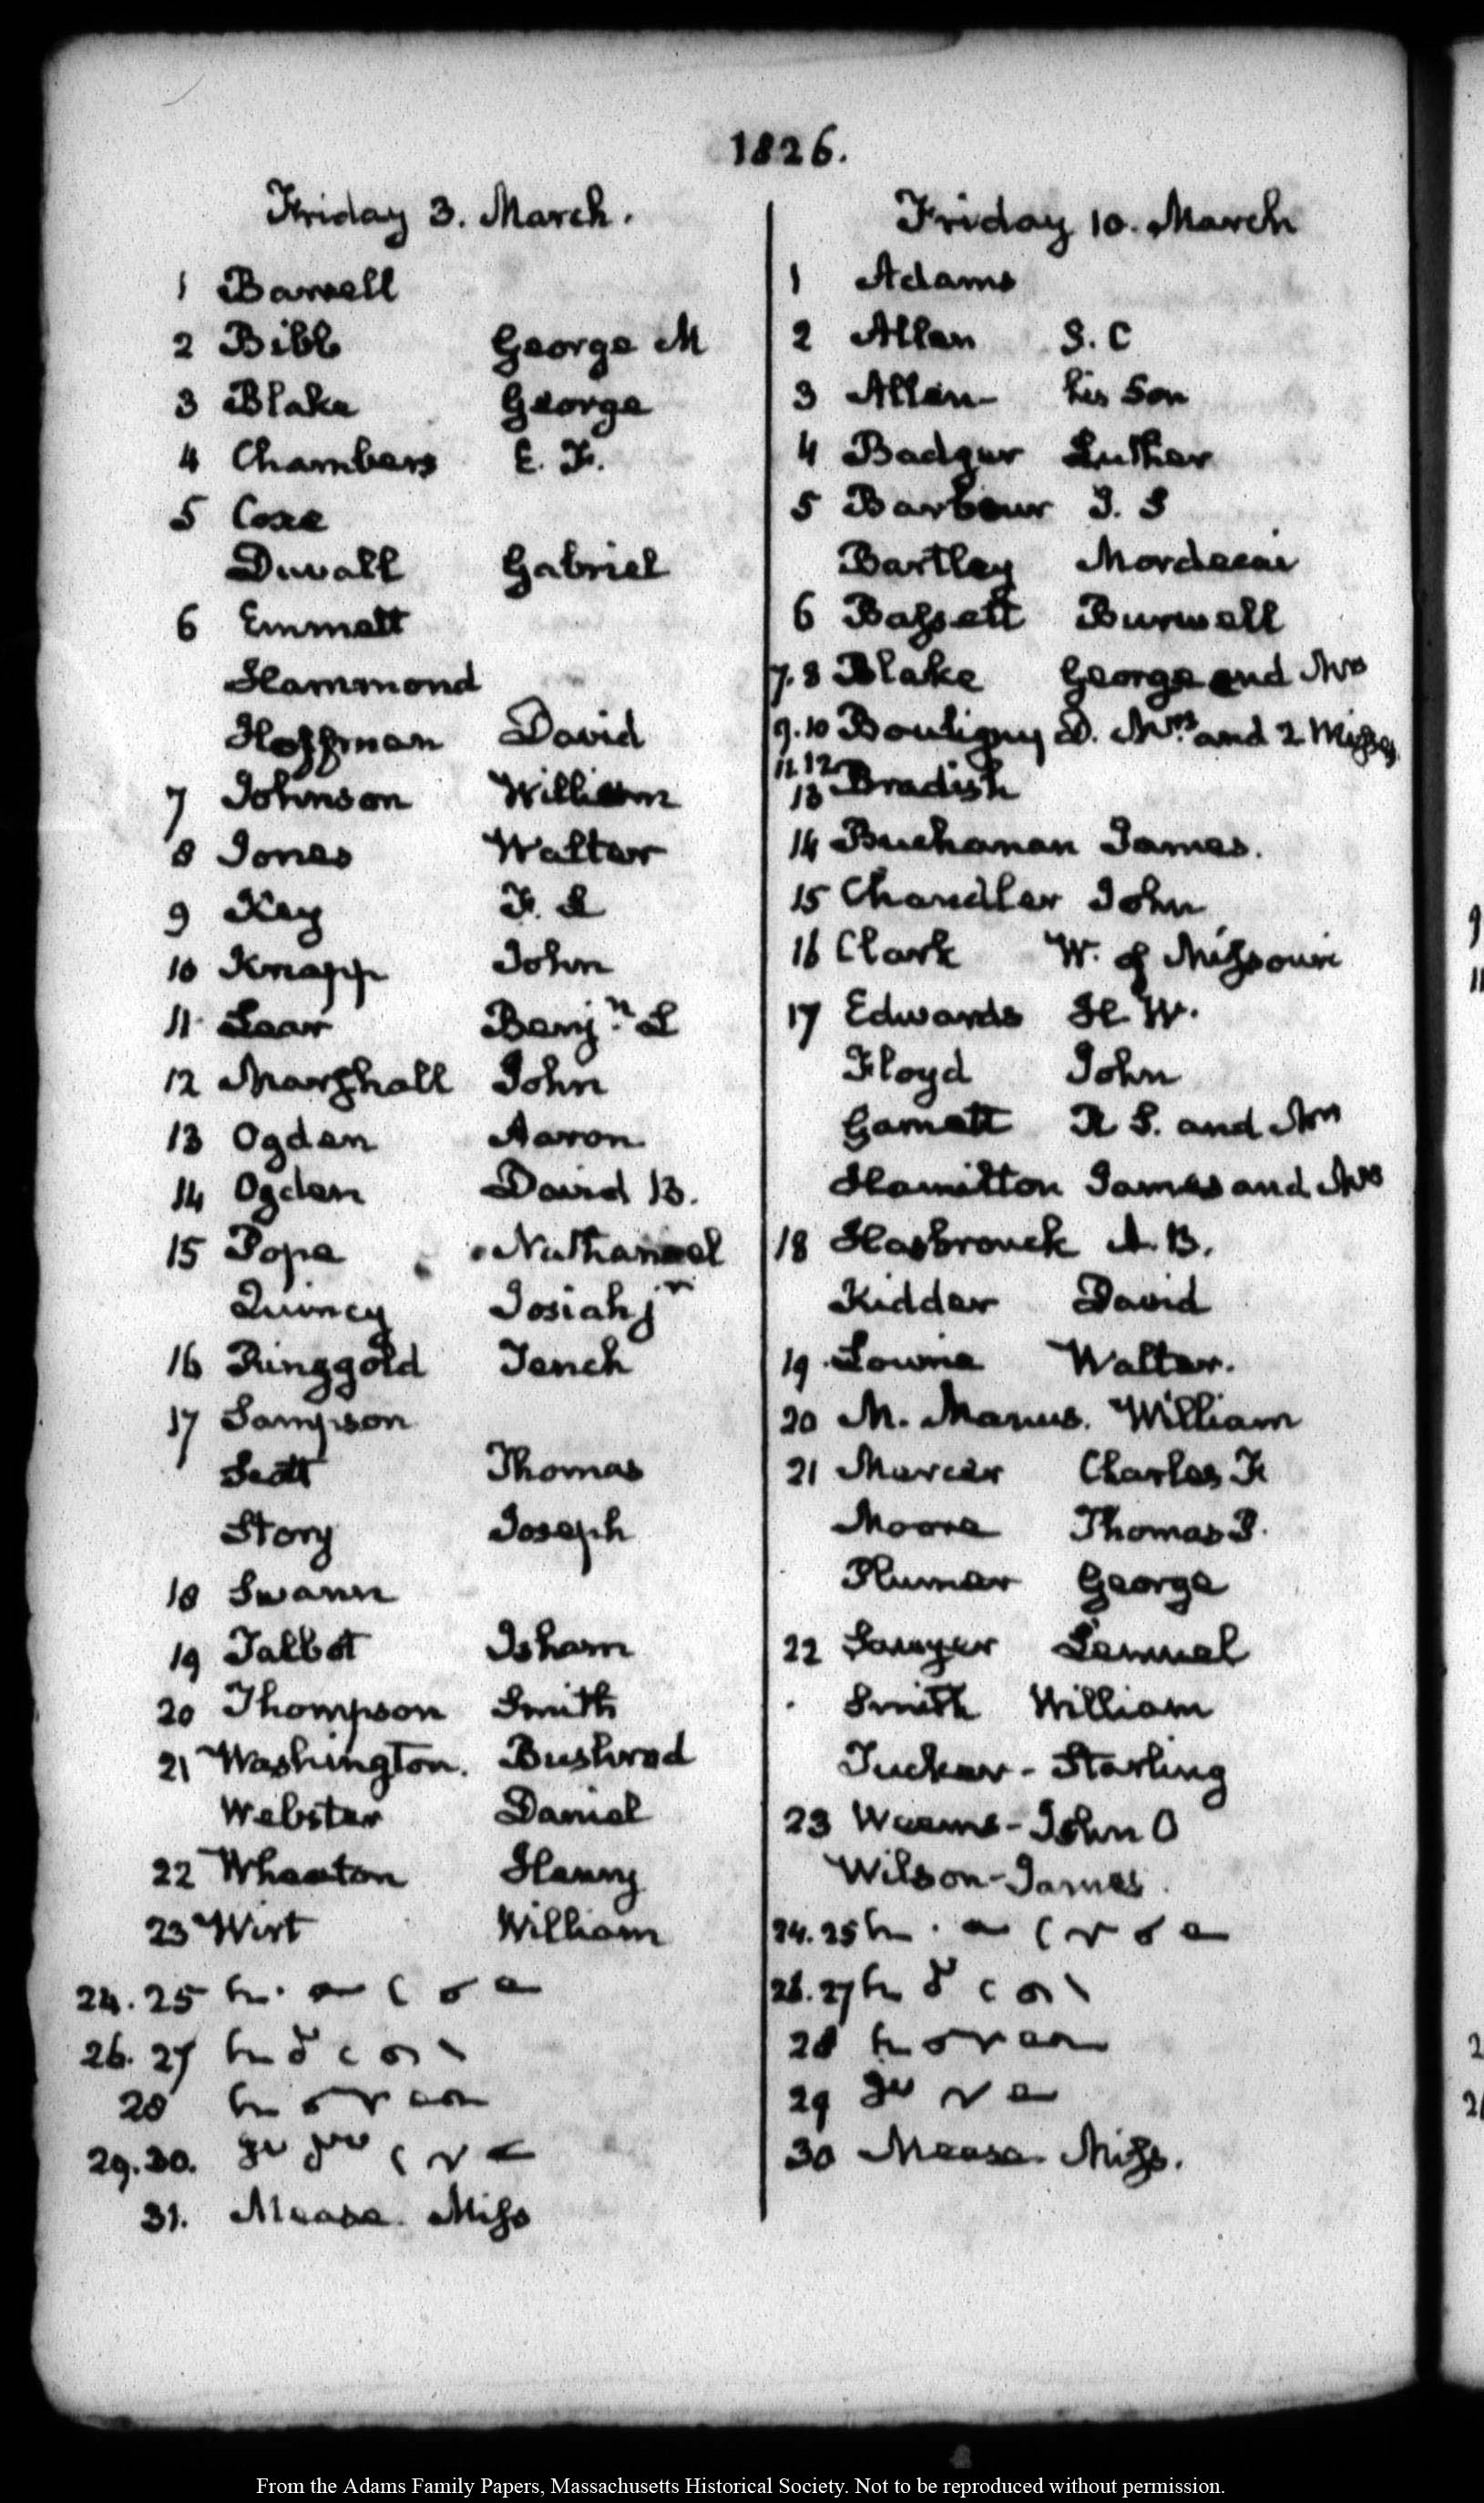 1826.
Friday 3. March.
1 Barrell
2 Bibb George M
3 Blake George
4 Chambers E. F.
5 Coxe
Duvall Gabriel
6 Emmett
Hammond
Hoffman David
7 Johnson William
8 Jones Walter
9 Key F. S
10 Knapp John
11 Lear Benj.n L
12 Marshall John
13 Ogden Aaron
14 Ogden David B.
15 Pope Nathaniel
Quincy Josiah jr
16 Ringgold Tench
17 Sampson
Scott Thomas
Story Joseph
18 Swann
19 Talbot Isham
20 Thompson Smith
21 Washington. Bushrod
Webster Daniel
22 Wheaton Henry
23 Wirt William
24. 25
26. 27
28
29. 30.
31. Mease Miss
Friday 10. March
1 Adams
2 Allen S. C
3 Allen his Son
4 Badger Luther
5 Barbour J. S
Bartley Mordecai
6 Bassett Burwell
7. 8 Blake George and Mrs
9. 10 Bouligny D. Mrs and 2 Misses
11. 12
13 Bradish
14 Buchanan James.
15 Chandler John
16 Clark W. of Missouri
17 Edwards H W.
Floyd John
Garnett R S. and Mrs
Hamilton James and Mrs
18 Hasbrouck A. B.
Kidder David
19 Lowrie Walter.
20 M. Manus. William
21 Mercer Charles F
Moore Thomas P.
Plumer George
22 Sawyer Lemuel
Smith William
Tucker - Starling
23 Weems - John C
Wilson - James
24. 25
26. 27
28
29
30 Mease Miss.
From the Adams Family Papers, Massachusetts Historical Society. Not to be reproduced without permission.